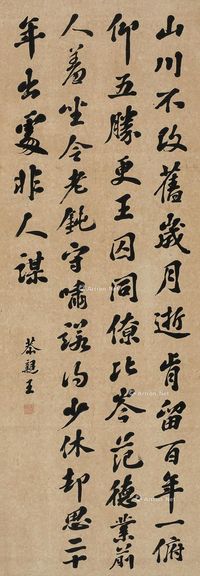 山川不改舊歲月逝肯留百年一俯
仰五勝更王囚同僚比岑范德業前
人羞坐令老鈍守嘯諾得少休却思二十
年出處非人謀
蔡超王